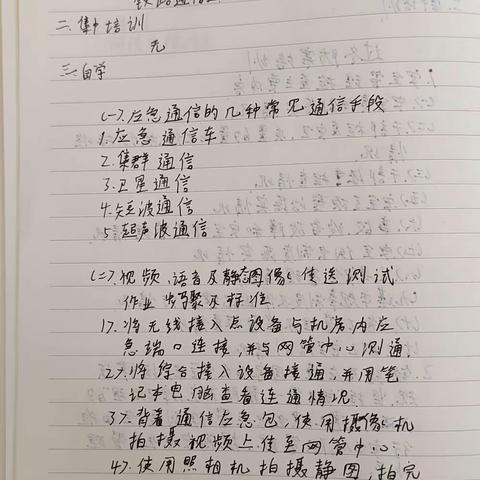 二、集中培训
无
三、自学
(一)、应急通信的几种常见通信手段
1.应急通信车
2.集群通信
3.卫星通信
4.短波通信
5.超声波通信
(二)、视频、语音及静态图像传送测试
作业步骤及标准
1)、将无线接入点设备与机房内应
急端口连接,并与网管中心测通.
2)、将综合接入设备接通,并用笔
记本电脑查看连通情况
3)、背着通信应急包,使用摄像机
拍摄视频上传至网管中心.
4)、使用照相机拍摄静图,拍完